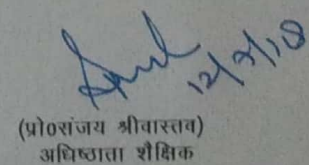 12/7/18
(प्रो०संजय श्रीवास्तव)
अधिष्ठाता शैक्षिक